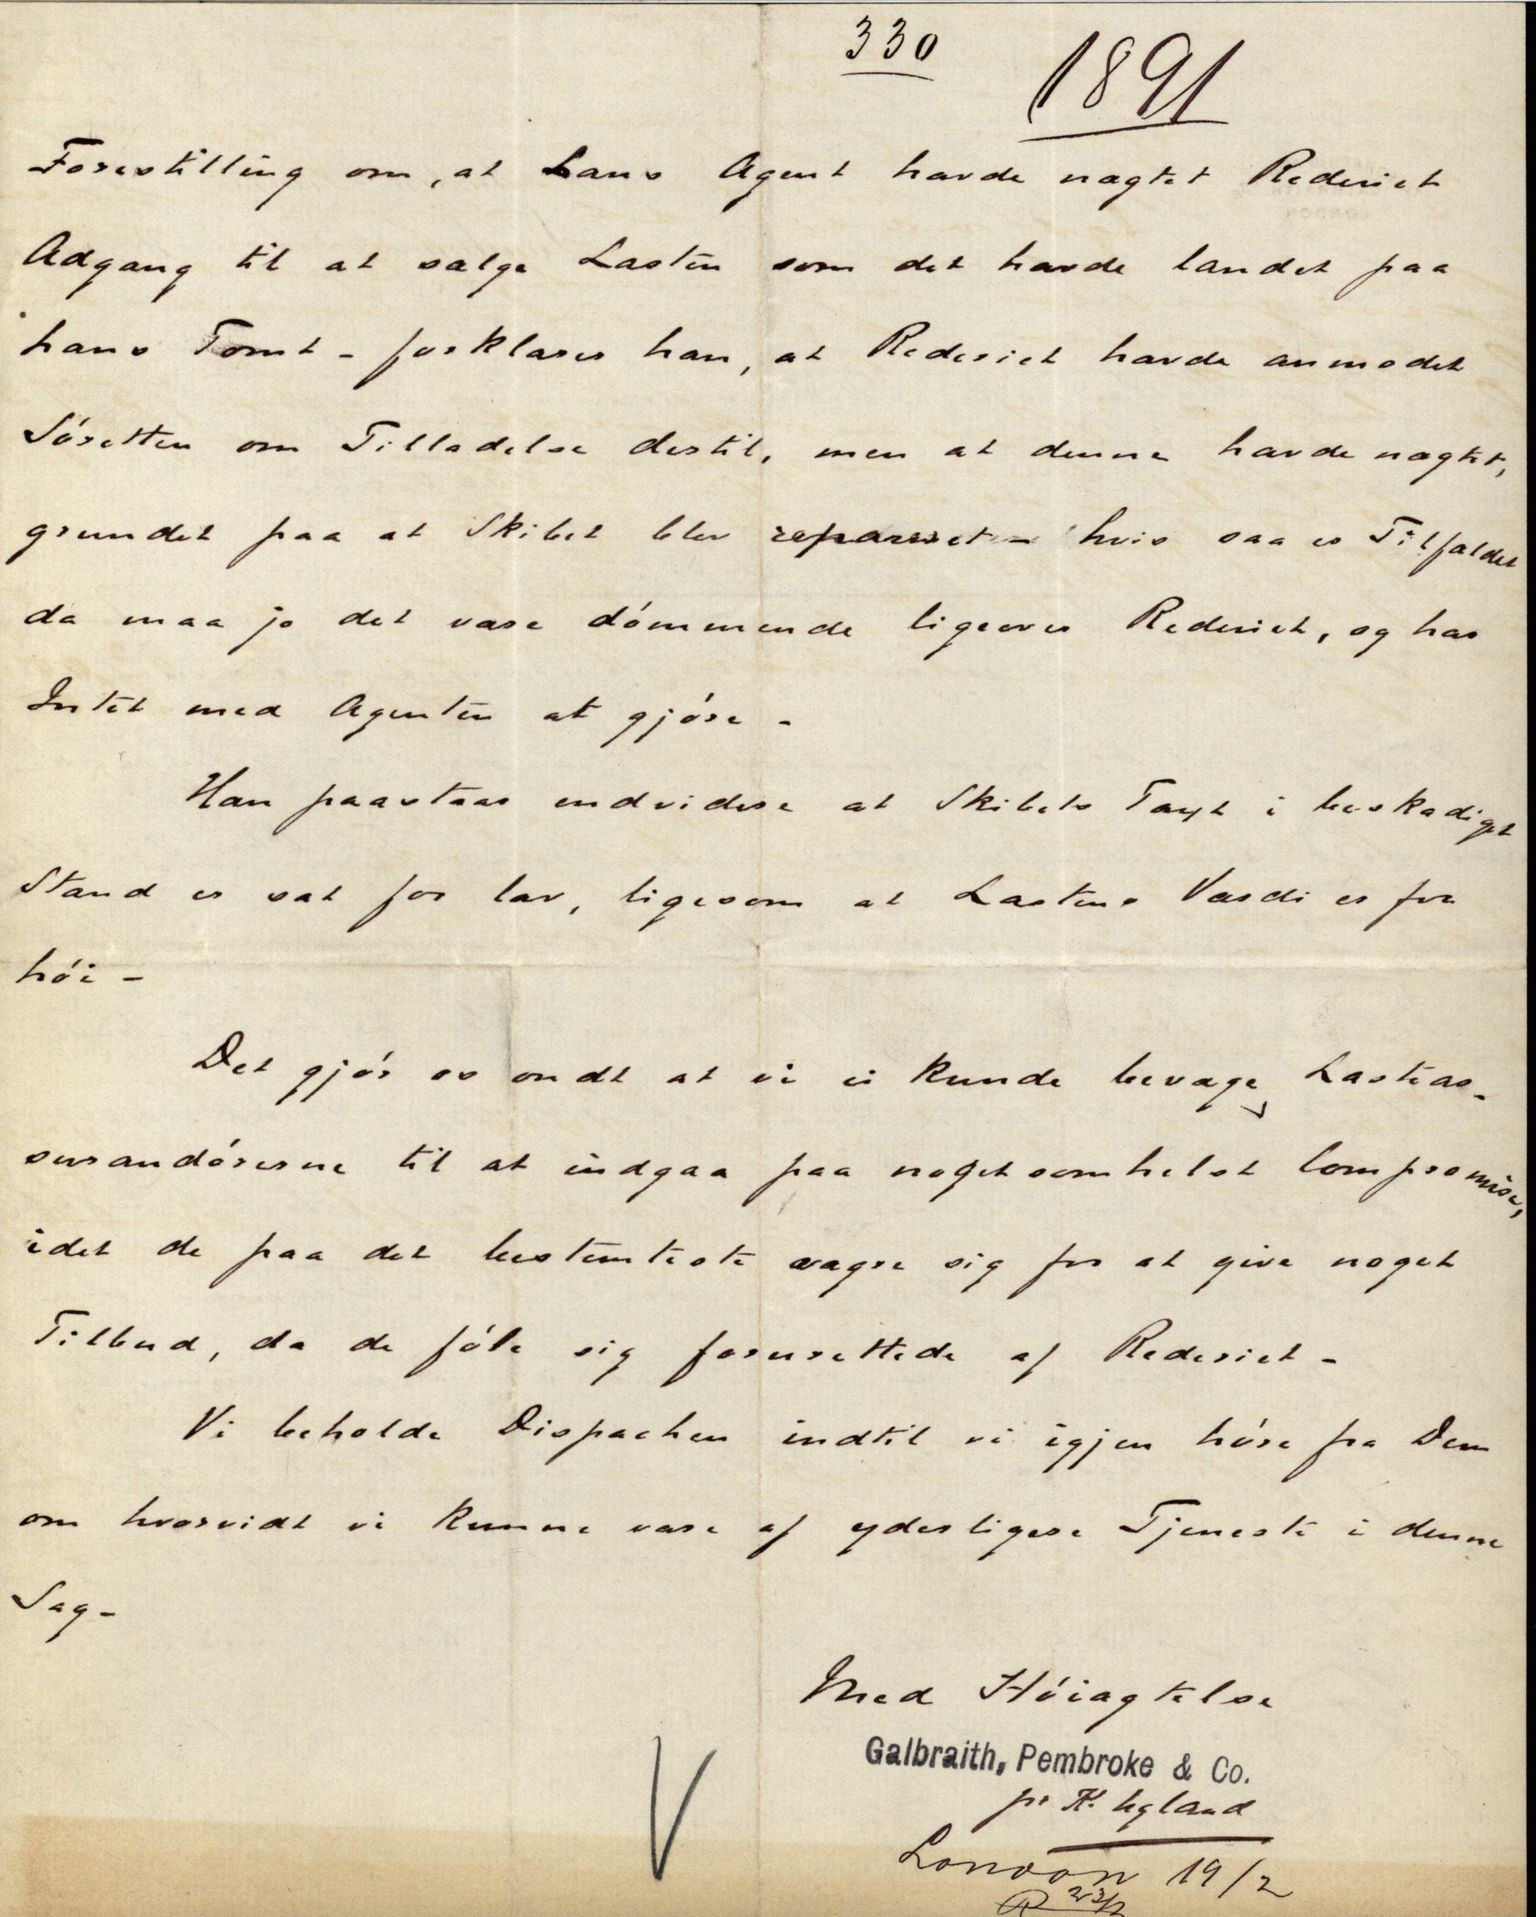 330 1891
Forestilling om, at hans Agent havde nægtet Rederiet
Adgang til at sælge Lasten som det havde landet paa
hans Tomt - forklarer han, at Rederiet havde anmodet
Söretten om Tilladelse dertil, men at denne havde nægtet,
grundet paa at Skibet blev repareret - hvis saa er Tilfældet
da maa jo det være dömmende ligeover Rederiet, og har
Intet med Agenten at gjöre -
Han paastaar endvidere at Skibets Taxt i beskadiget
Stand er sat for lav, ligesom at Lastens Værdi er for
höi -
Det gjör os ondt at vi ei kunde bevæge Lasteas-
surandörerne til at indgaa paa nogetsomhelst Compromise,
idet de paa det bestemteste vægre sig for at give noget
Tilbud, da de föle sig forurettede af Rederiet -
Vi beholde Dispachen indtil vi igjen höre fra Dem
om hvorvidt vi kunne være af yderligere Tjeneste i denne
Sag -
Med Höiagtelse
Galbraith, Pembroke & Co.
pr K. Egland
London 19/2
R 23/2